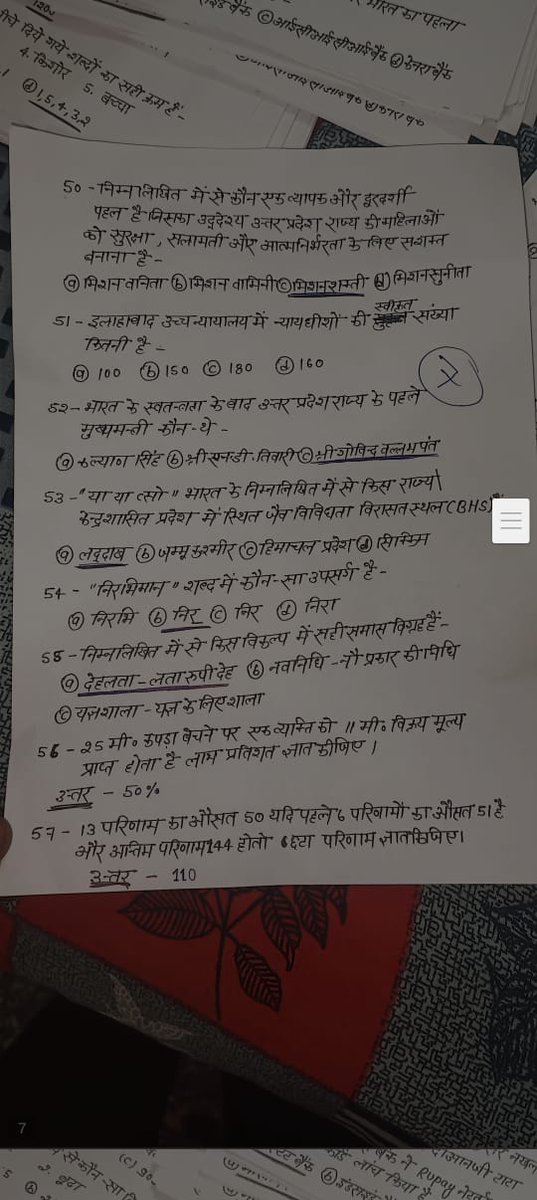 भारत का पहला
बैंक ⓒ आईसीआईसीआई बैंक ⓓ केनरा बैंक
नीचे दिये गये शब्दों का सही क्रम है -
4. किशोर 5. बच्चा
ⓓ 1, 5, 4, 3, 2
50 - निम्नलिखित में से कौन एक व्यापक और दूरदर्शी
पहल है जिसका उद्देश्य उत्तर प्रदेश राज्य की महिलाओं
को सुरक्षा, सलामती और आत्मनिर्भरता के लिए सशक्त
बनाना है -
ⓐ मिशन वनिता ⓑ मिशन वामिनी ⓒ मिशन शक्ती ⓓ मिशन सुनीता
51 - इलाहाबाद उच्च न्यायालय में न्यायधीशों की स्वीकृत संख्या
कितनी है -
ⓐ 100 ⓑ 150 ⓒ 180 ⓓ 160
52 - भारत के स्वतन्त्रता के बाद उत्तर प्रदेश राज्य के पहले
मुख्यमन्त्री कौन थे -
ⓐ कल्याण सिंह ⓑ श्री एनडी. तिवारी ⓒ श्री गोविन्द वल्लभ पंत
53 - "या या त्सो" भारत के निम्नलिखित में से किस राज्य\
केन्द्रशासित प्रदेश में स्थित जैव विविधता विरासत स्थल (BHS)
ⓐ लद्दाख ⓑ जम्मू कश्मीर ⓒ हिमाचल प्रदेश ⓓ सिक्किम
54 - "निरभिमान" शब्द में कौन-सा उपसर्ग है -
ⓐ निरभि ⓑ निर् ⓒ निर ⓓ निरा
55 - निम्नलिखित में से किस विकल्प में सही समास विग्रह हैं -
ⓐ देहलता - लता रुपी देह ⓑ नवनिधि - नौ प्रकार की निधि
ⓒ यज्ञशाला - यज्ञ के लिए शाला
56 - 25 मी॰ कपड़ा बेचने पर एक व्यक्ति को 11 मी॰ विक्रय मूल्य
प्राप्त होता है लाभ प्रतिशत ज्ञात कीजिए।
उत्तर - 50%
57 - 13 परिणाम का औसत 50 यदि पहले 6 परिणामों का औसत 51 है
और अन्तिम परिणाम 144 हो तो 6ठा परिणाम ज्ञात किजिए।
उत्तर - 110
7